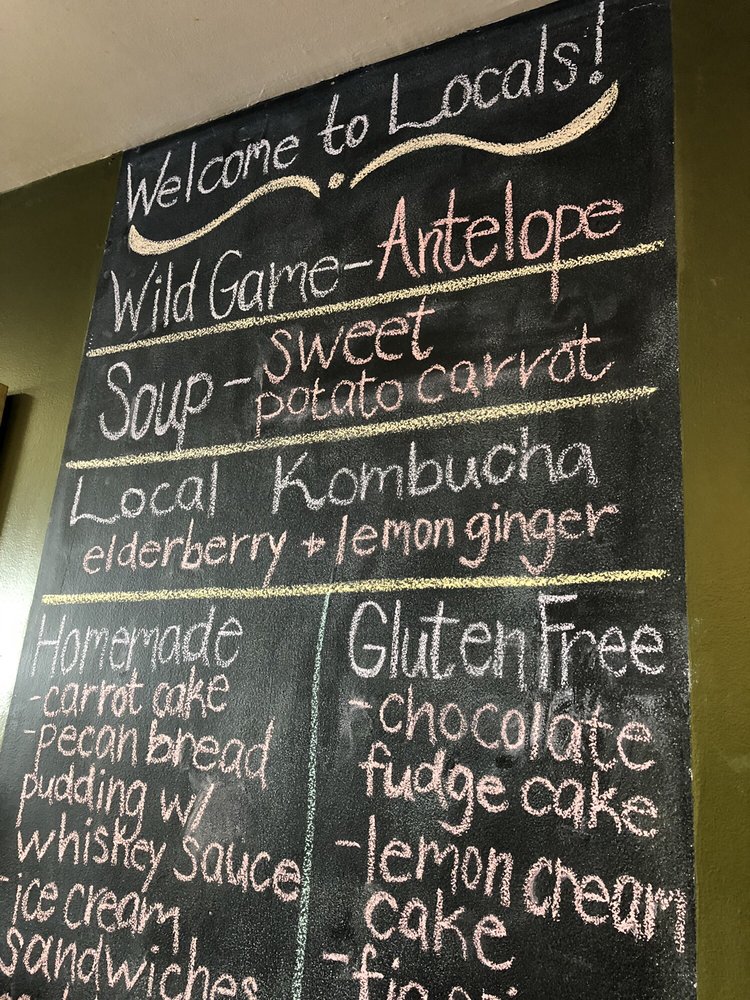 Welcome to Locals!
Wild Game - Antelope
Soup - sweet
potato carrot
Local Kombucha
elderberry + lemon ginger
Homemade
- carrot cake
- pecan bread
pudding w/
whiskey sauce
- ice cream
sandwiches
Gluten Free
- chocolate
fudge cake
- lemon cream
cake
- fig